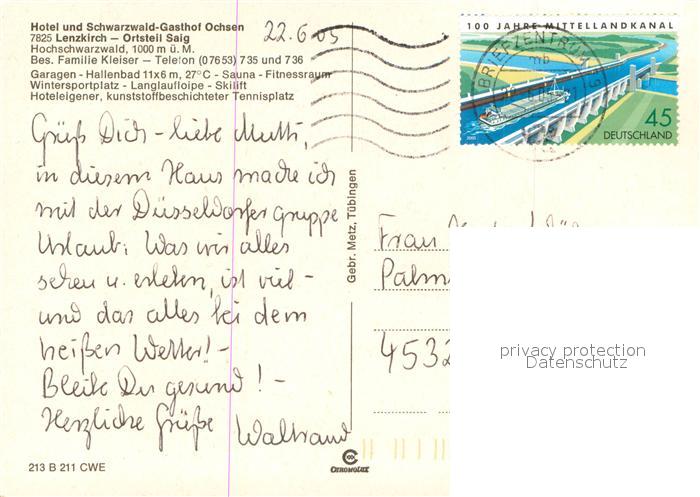 Hotel und Schwarzwald-Gasthof Ochsen
7825 Lenzkirch – Ortsteil Saig
Hochschwarzwald, 1000 m ü. M.
Bes. Familie Kleiser – Telefon (07653) 735 und 736
Garagen - Hallenbad 11x6 m, 27°C - Sauna - Fitnessraum
Wintersportplatz - Langlaufloipe - Skilift
Hoteleigener, kunststoffbeschichteter Tennisplatz
22.6.05
100 JAHRE MITTELLANDKANAL
BRIEFZENTRUM
mb
45
DEUTSCHLAND
Grüß Dich – liebe Mutti,
in diesem Haus mache ich
mit der Düsseldorfer Gruppe
Urlaub. Was wir alles
sehen u. erleben, ist viel –
und das alles bei dem
heißen Wetter! –
Bleib Du gesund! –
Herzliche Grüße Waltraud
Gebr. Metz, Tübingen
Frau
Palm
4532
privacy protection
Datenschutz
213 B 211 CWE
CHROMOLUX